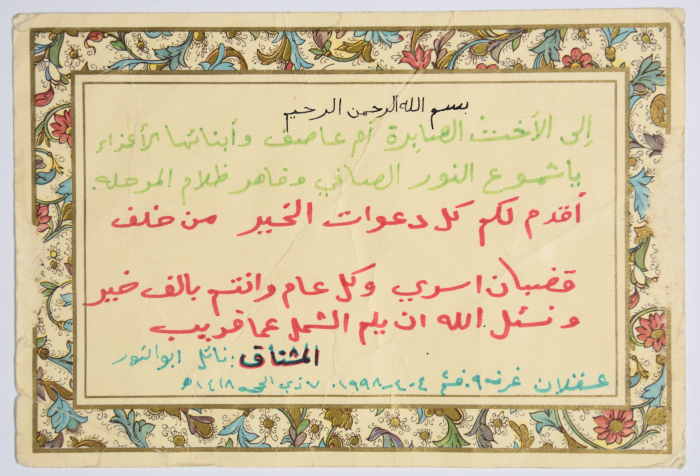 بسم الله الرحمن الرحيم
إلى الأخت الصابرة أم عاصف وأبنائها الأعزاء
يا شموع النور الصافي وقاهر ظلام المرحله.
أقدم لكم كل دعوات الخير من خلف
قضبان اسري وكل عام وانتم بالف خير
ونسئل الله ان يلم الشمل عما قريب
المشتاق: نائل ابو النور
عسقلان غرفة ٩. ٤-٤-١٩٩٨. ٧ ذي الحجه ١٤١٨هـ